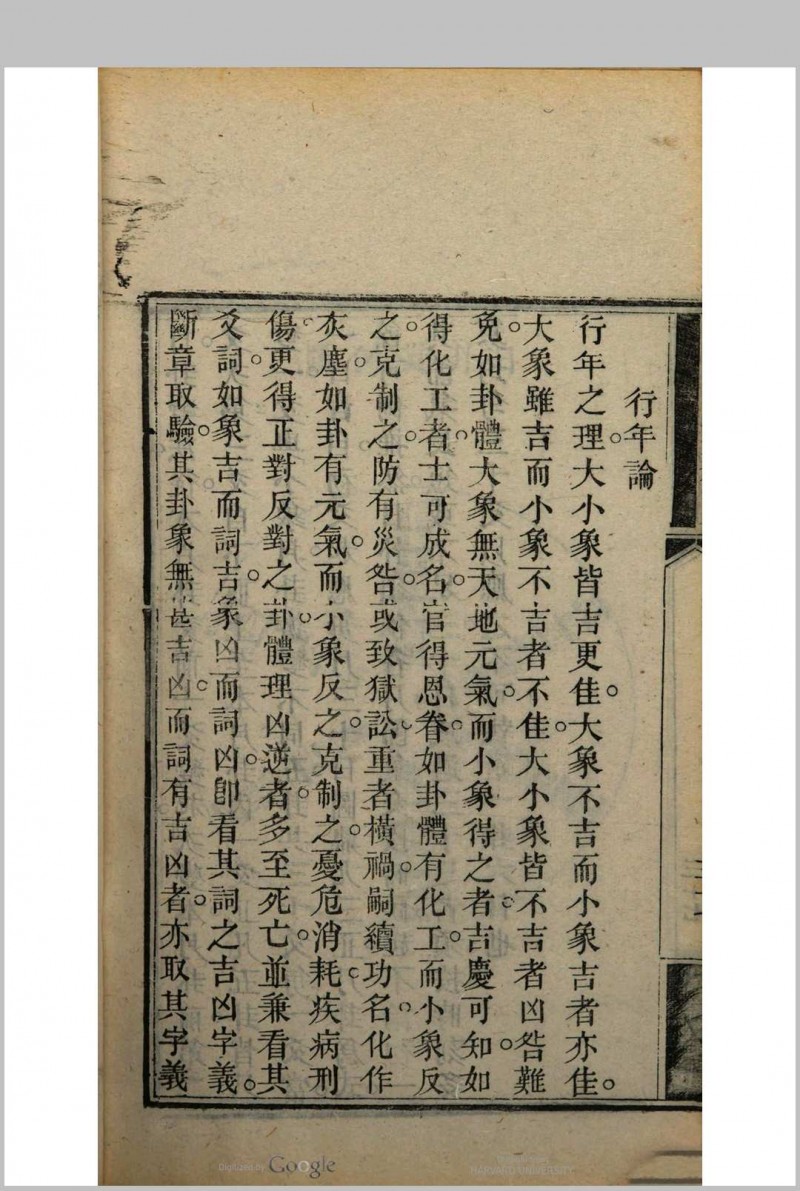 行年論
行年之理。大小象皆吉更佳。大象不吉而小象吉者亦佳。
大象雖吉而小象不吉者不佳。大小象皆不吉者凶咎難
免。如卦體大象無天地元氣。而小象得之者。吉慶可知。如
得化工者。士可成名。官得恩眷。如卦體有化工。而小象反
之。克制之。防有災咎。或致獄訟。重者橫禍。嗣續功名。化作
灰塵。如卦有元氣。而小象反之。克制之。憂危消耗。疾病刑
傷。更得正對反對之卦。體理凶逆者。多至死亡。並兼看其
爻詞。如象吉而詞吉。象凶而詞凶。卽看其詞之吉凶字義。
斷章取驗。其卦象無甚吉凶。而詞有吉凶者。亦取其字義
Digitized by Google
HARVARD UNIVERSITY